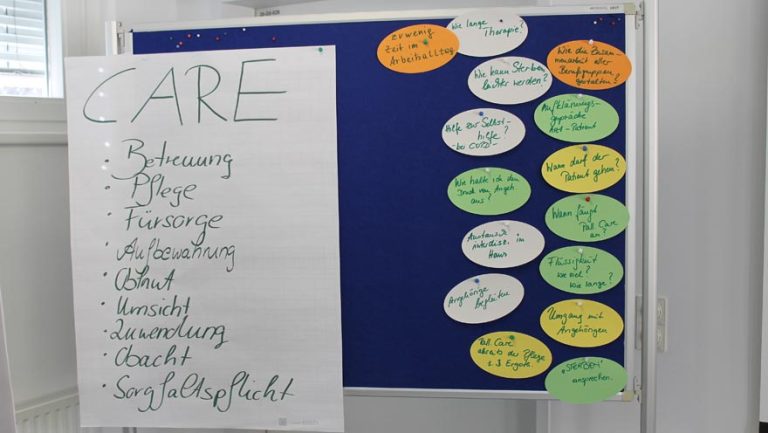 CARE
• Betreuung
• Pflege
• Fürsorge
• Aufbewahrung
• Obhut
• Umsicht
• Zuwendung
• Obacht
• Sorgfaltspflicht
zu wenig
Zeit im
Arbeitsalltag
Wie lange
Therapie?
Wie kann Sterben
leichter werden?
Hilfe zur Selbst-
hilfe?
- bei COPD -
Wie halte ich den
Druck von Angeh.
aus?
Austausch
interdisz. im
Haus
Angehörige
begleiten
Pall Care
abseits der Pflege
z.B Ergoth.
Wie die Zusam-
menarbeit aller
Berufsgruppen
gestalten?
Aufklärungs-
gespräche
Arzt - Patient
Wann darf der
Patient gehen?
Wann fängt
Pall Care
an?
Flüssigkeit
wie viel?
wie lange?
Umgang mit
Angehörigen
„STERBEN"
ansprechen.